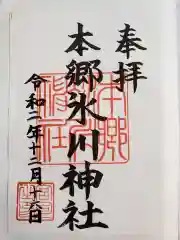 奉拝
本郷氷川神社
令和二年十二月十六日